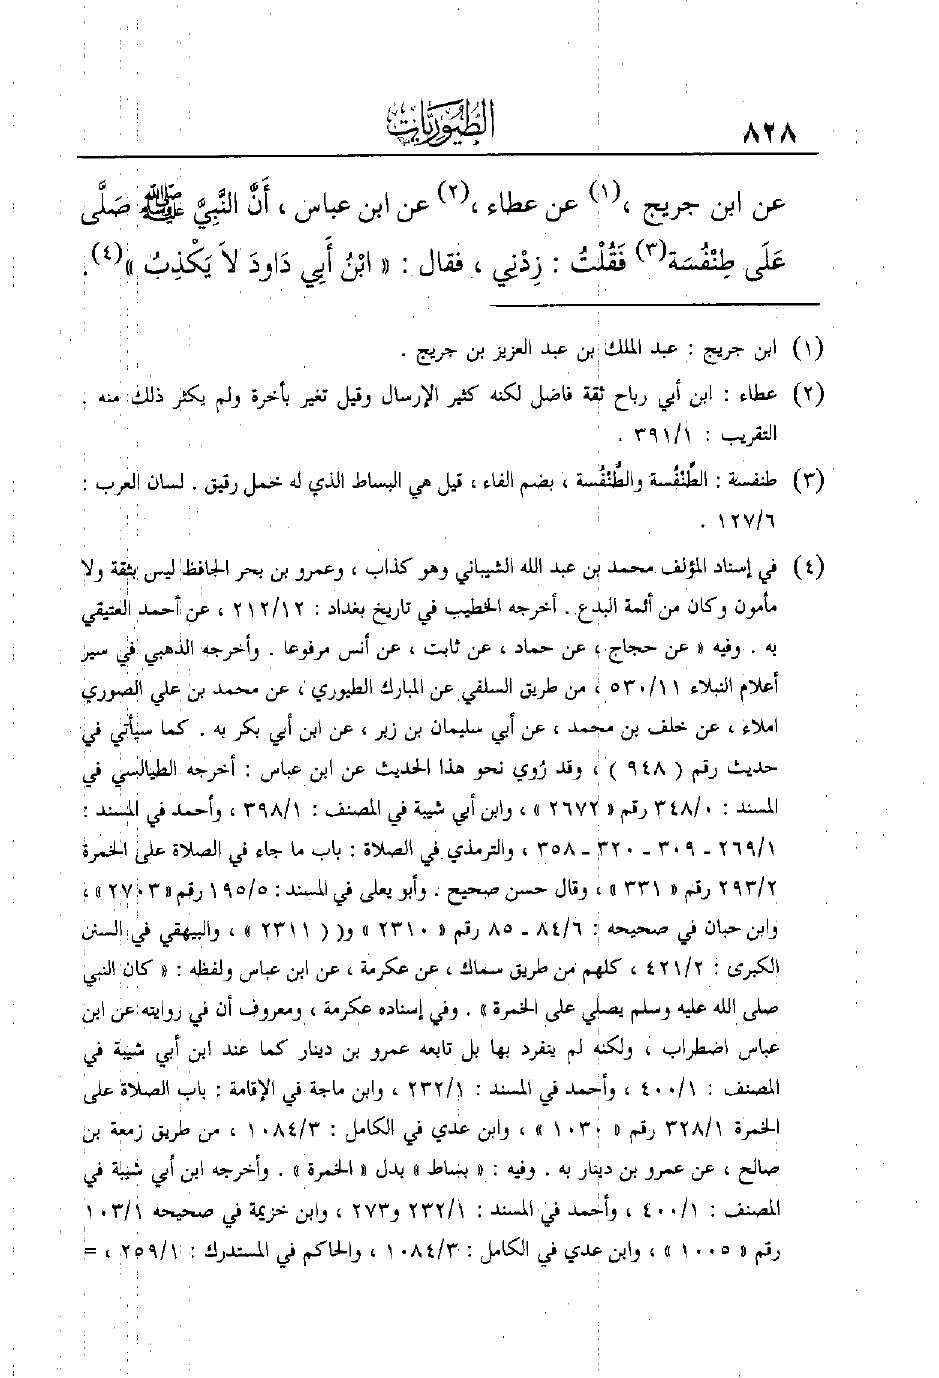 ٨٢٨
الطُيُورِيَّات
عن ابن جريج ،(١) عن عطاء ،(٢) عن ابن عباس ، أَنَّ النَّبِيَّ ﷺ صَلَّى
عَلَى طِنْفُسَة(٣) فَقُلْتُ : زِدْنِي ، فقال : « ابْنُ أَبِي دَاودَ لاَ يَكْذِبُ »(٤).
(١) ابن جريج : عبد الملك بن عبد العزيز بن جريج .
(٢) عطاء : ابن أبي رباح ثقة فاضل لكنه كثير الإرسال وقيل تغير بأخرة ولم يكثر ذلك منه .
التقريب : ٣٩١/١ .
(٣) طنفسة : الطِّنْفُسة والطُّنْفُسة ، بضم الفاء ، قيل هي البساط الذي له خمل رقيق . لسان العرب :
١٢٧/٦ .
(٤) في إسناد المؤلف محمد بن عبد الله الشيباني وهو كذاب ، وعمرو بن بحر الحافظ ليس بثقة ولا
مأمون وكان من أئمة البدع . أخرجه الخطيب في تاريخ بغداد : ٢١٢/١٢ ، عن أحمد العتيقي
به . وفيه « عن حجاج ، عن حماد ، عن ثابت ، عن أنس مرفوعا . وأخرجه الذهبي في سير
أعلام النبلاء ٥٣٠/١١ ، من طريق السلفي عن المبارك الطيوري ، عن محمد بن علي الصوري
املاء ، عن خلف بن محمد ، عن أبي سليمان بن زبر ، عن ابن أبي بكر به . كما سيأتي في
حديث رقم ( ٩٤٨ ) ، وقد رُوي نحو هذا الحديث عن ابن عباس : أخرجه الطيالسي في
المسند : ٣٤٨/٠ رقم « ٢٦٧٢ » ، وابن أبي شيبة في المصنف : ٣٩٨/١ ، وأحمد في المسند :
٢٦٩/١ ـ ٣٠٩ ـ ٣٢٠ ـ ٣٥٨ ، والترمذي في الصلاة : باب ما جاء في الصلاة على الخمرة
٢٩٣/٢ رقم « ٣٣١ » ، وقال حسن صحيح . وأبو يعلى في المسند : ١٩٥/٥ رقم « ٢٧٠٣ » ،
وابن حبان في صحيحه : ٨٤/٦ ـ ٨٥ رقم « ٢٣١٠ » و(( ٢٣١١ » ، والبيهقي في السنن
الكبرى : ٤٢١/٢ ، كلهم من طريق سماك ، عن عكرمة ، عن ابن عباس ولفظه : « كان النبي
صلى الله عليه وسلم يصلي على الخمرة » . وفي إسناده عكرمة ، ومعروف أن في روايته عن ابن
عباس اضطراب ، ولكنه لم ينفرد بها بل تابعه عمرو بن دينار كما عند ابن أبي شيبة في
المصنف : ٤٠٠/١ ، وأحمد في المسند : ٢٣٢/١ ، وابن ماجة في الإقامة : باب الصلاة على
الخمرة ٣٢٨/١ رقم « ١٠٣٠ » ، وابن عدي في الكامل : ١٠٨٤/٣ ، من طريق زمعة بن
صالح ، عن عمرو بن دينار به . وفيه : « بساط » بدل « الخمرة » . وأخرجه ابن أبي شيبة في
المصنف : ٤٠٠/١ ، وأحمد في المسند : ٢٣٢/١ و٢٧٣ ، وابن خزيمة في صحيحه ١٠٣/١
رقم « ١٠٠٥ » ، وابن عدي في الكامل : ١٠٨٤/٣ ، والحاكم في المستدرك : ٢٥٩/١ ، =